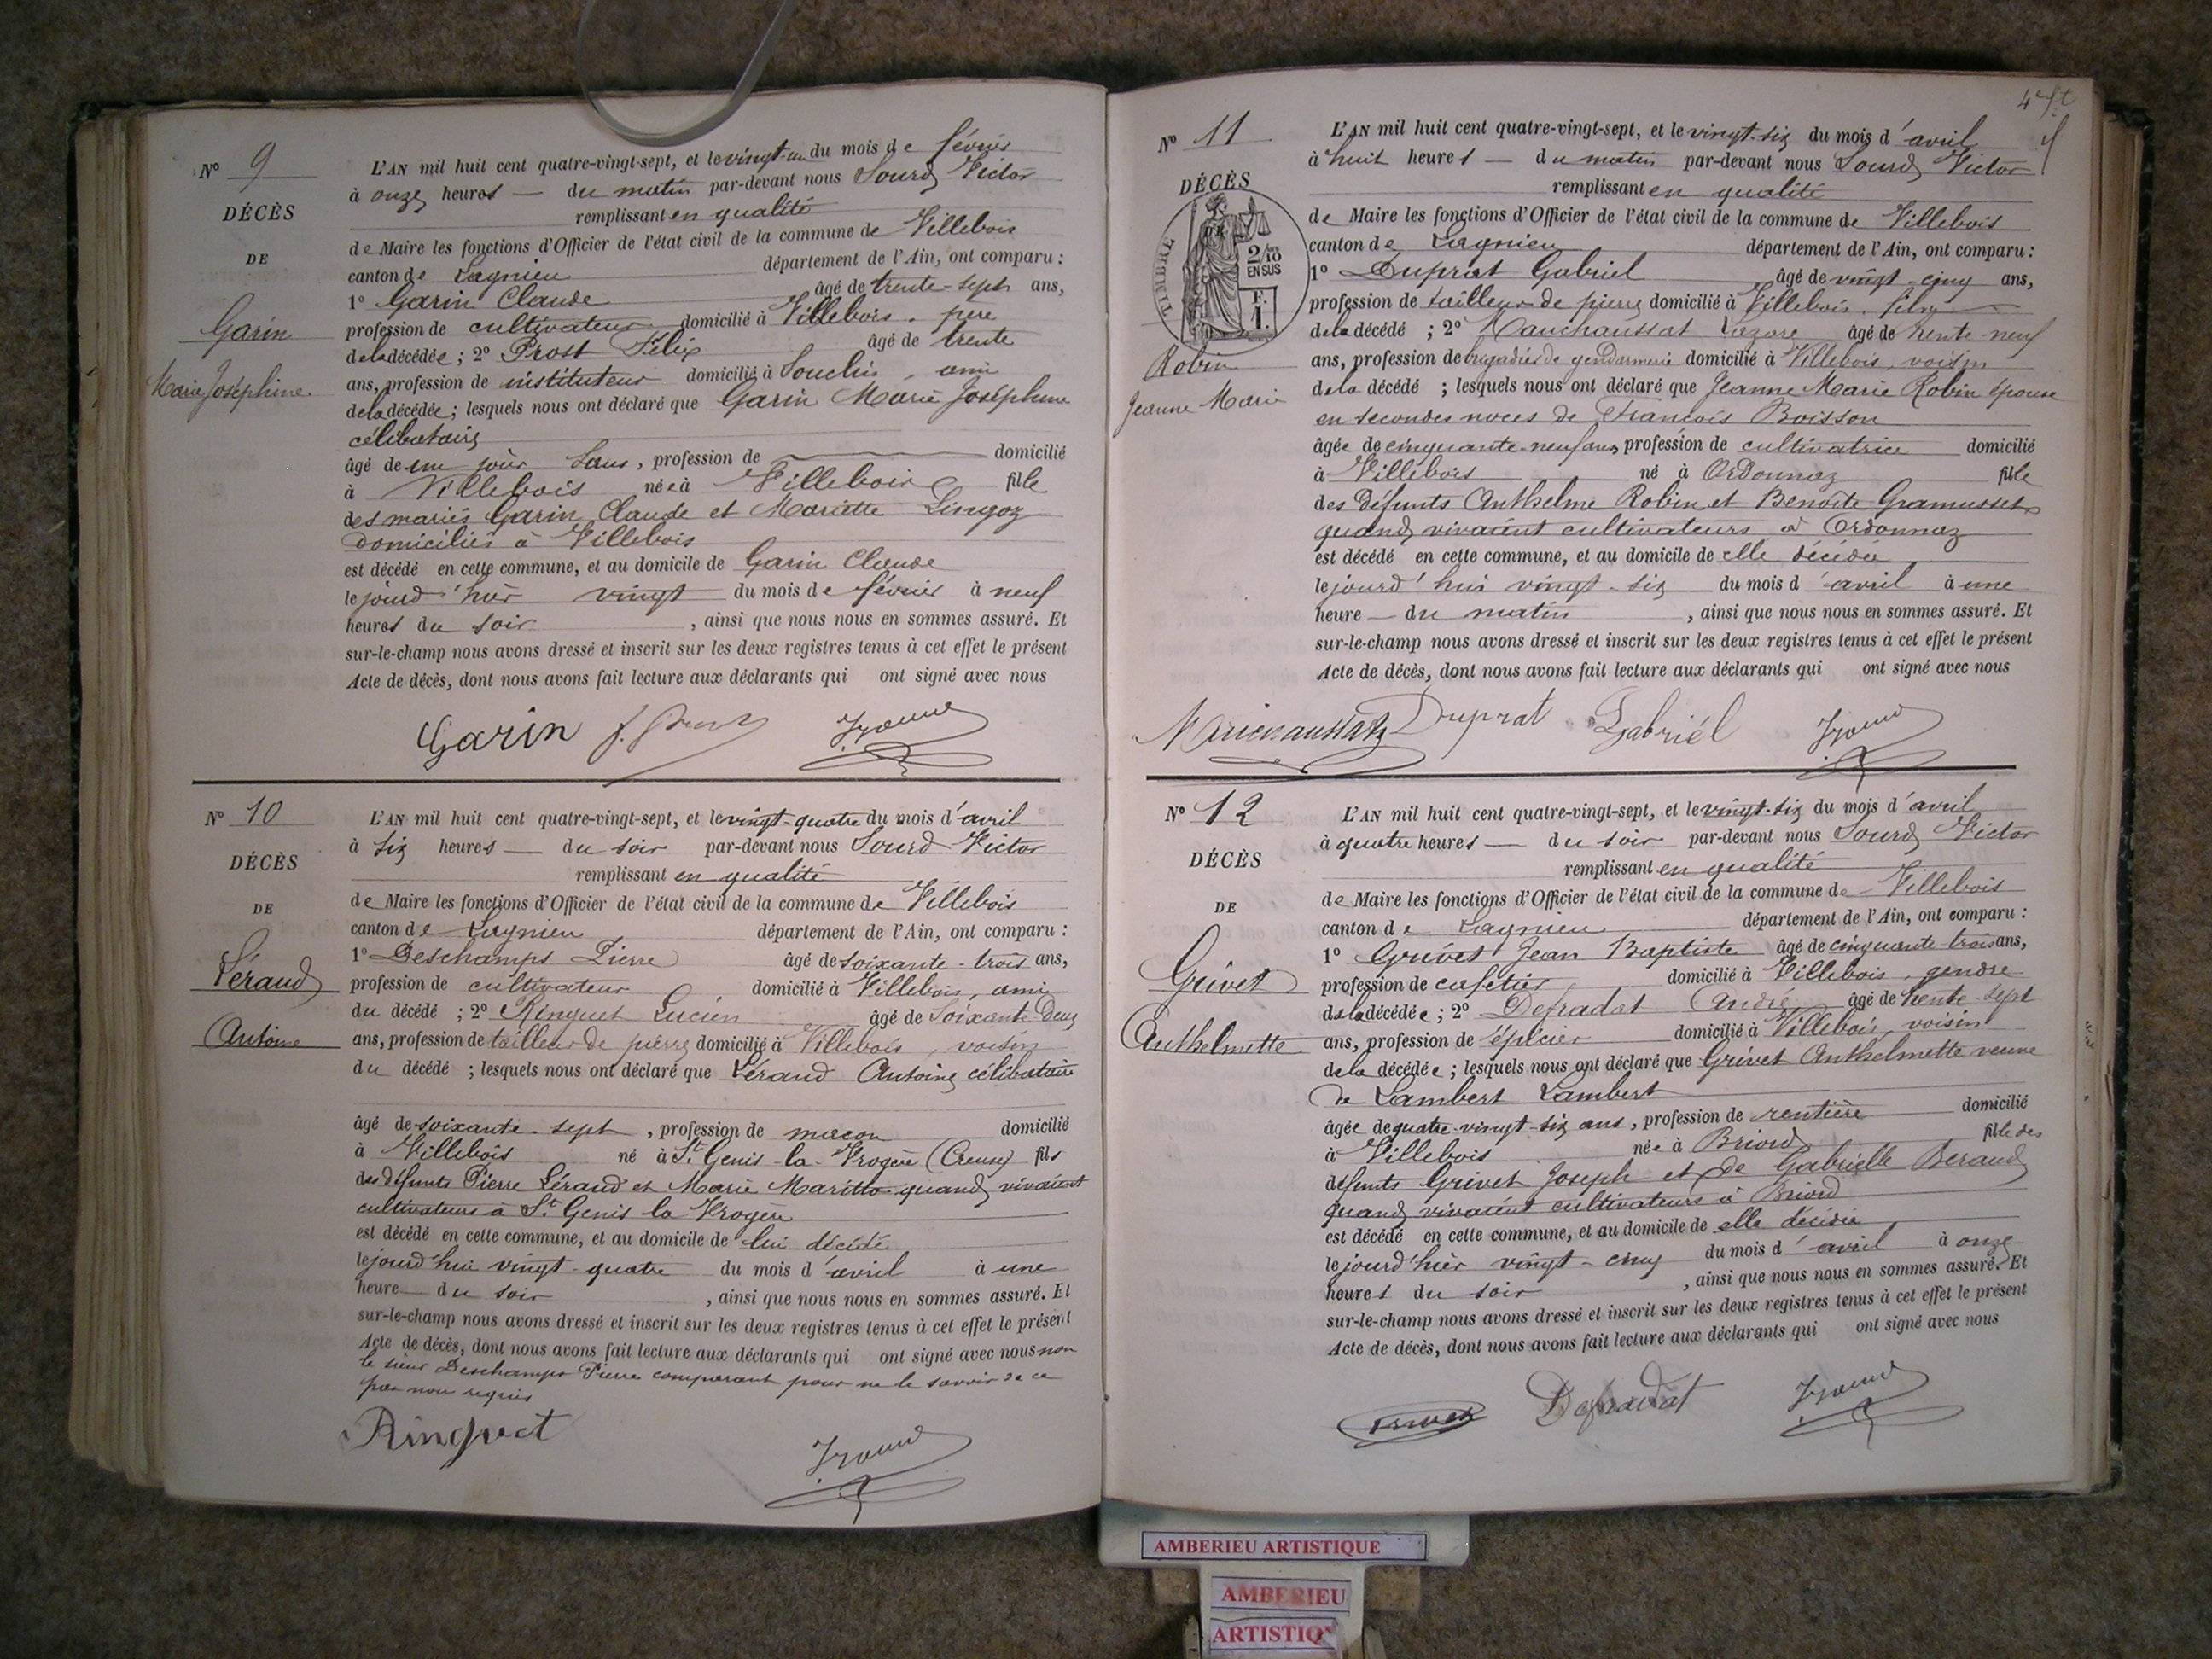 N° 9
DÉCÈS
DE
Garin
Marie Joséphine.
L'AN mil huit cent quatre-vingt-sept, et le vingt-un du mois de février
à onze heures — du matin par-devant nous Sourd Victor
remplissant en qualité
de Maire les fonctions d'Officier de l'état civil de la commune de Villebois
canton de Lagnieu département de l'Ain, ont comparu :
1° Garin Claude âgé de trente-sept ans,
profession de cultivateur domicilié à Villebois, père
de la décédée ; 2° Prost Félix âgé de trente
ans, profession de instituteur domicilié à Souclin, ami
de la décédée ; lesquels nous ont déclaré que Garin Marie Joséphine
célibataire
âgé de un jour sans, profession de — domicilié
à Villebois née à Villebois fille
des mariés Garin Claude et Mariette
domiciliés à Villebois
est décédé en cette commune, et au domicile de Garin Claude
le jourd'hier vingt du mois de février à neuf
heures du soir , ainsi que nous nous en sommes assuré. Et
sur-le-champ nous avons dressé et inscrit sur les deux registres tenus à cet effet le présent
Acte de décès, dont nous avons fait lecture aux déclarants qui ont signé avec nous
Garin
N° 10
DÉCÈS
DE
Léraud
Antoine
L'AN mil huit cent quatre-vingt-sept, et le vingt-quatre du mois d'avril
à six heures — du soir par-devant nous Sourd Victor
remplissant en qualité
de Maire les fonctions d'Officier de l'état civil de la commune de Villebois
canton de Lagnieu département de l'Ain, ont comparu :
1° Deschamps Pierre âgé de soixante-trois ans,
profession de cultivateur domicilié à Villebois, ami
du décédé ; 2° Ringuet Lucien âgé de Soixante Deux
ans, profession de tailleur de pierre domicilié à Villebois, voisin
du décédé ; lesquels nous ont déclaré que Léraud Antoine célibataire
âgé de soixante-sept , profession de maçon domicilié
à Villebois né à St Genis-la- (Creuse) fils
des défunts Pierre Léraud et Marie quand vivaient
cultivateurs à St Genis la
est décédé en cette commune, et au domicile de lui décédé
le jourd'hui vingt-quatre du mois d'avril à une
heure — du soir , ainsi que nous nous en sommes assuré. Et
sur-le-champ nous avons dressé et inscrit sur les deux registres tenus à cet effet le présent
Acte de décès, dont nous avons fait lecture aux déclarants qui ont signé avec nous non
le sieur Deschamps Pierre comparant pour ne le savoir de ce
par nous requis
Ringuet
N° 11
DÉCÈS
TIMBRE
2/10
EN SUS
Robin
Jeanne Marie
L'AN mil huit cent quatre-vingt-sept, et le vingt-six du mois d'avril
à huit heures — du matin par-devant nous Sourd Victor
remplissant en qualité
de Maire les fonctions d'Officier de l'état civil de la commune de Villebois
canton de Lagnieu département de l'Ain, ont comparu :
1° Duprat Gabriel âgé de vingt-cinq ans,
profession de tailleur de pierre domicilié à Villebois,
de la décédé ; 2° Lazare âgé de trente-neuf
ans, profession de brigadier de gendarmerie domicilié à Villebois, voisin
de la décédé ; lesquels nous ont déclaré que Jeanne Marie Robin épouse
en secondes noces de François Boisson
âgée de cinquante-neuf ans, profession de cultivatrice domicilié
à Villebois né à Ordonnaz fille
des défunts Anthelme Robin et Benoîte Gramusset
quand vivaient cultivateurs à Ordonnaz
est décédé en cette commune, et au domicile de elle décédée
le jourd'hui vingt-six du mois d'avril à une
heure — du matin , ainsi que nous nous en sommes assuré. Et
sur-le-champ nous avons dressé et inscrit sur les deux registres tenus à cet effet le présent
Acte de décès, dont nous avons fait lecture aux déclarants qui ont signé avec nous
Duprat Gabriél
N° 12
DÉCÈS
DE
Grivet
Anthelmette
L'AN mil huit cent quatre-vingt-sept, et le vingt-six du mois d'avril
à quatre heures — du soir par-devant nous Sourd Victor
remplissant en qualité
de Maire les fonctions d'Officier de l'état civil de la commune de Villebois
canton de Lagnieu département de l'Ain, ont comparu :
1° Grivet Jean Baptiste âgé de cinquante-trois ans,
profession de cafetier domicilié à Villebois, gendre
de la décédée ; 2° Defradat André âgé de trente-sept
ans, profession de épicier domicilié à Villebois, voisin
de la décédée ; lesquels nous ont déclaré que Grivet Anthelmette veuve
de Lambert Lambert
âgée de quatre-vingt-six ans, profession de rentière domicilié
à Villebois née à Briord fille des
défunts Grivet Joseph et de Gabrielle Beraud
quand vivaient cultivateurs à Briord
est décédé en cette commune, et au domicile de elle décédée
le jourd'hier vingt-cinq du mois d'avril à onze
heures du soir , ainsi que nous nous en sommes assuré. Et
sur-le-champ nous avons dressé et inscrit sur les deux registres tenus à cet effet le présent
Acte de décès, dont nous avons fait lecture aux déclarants qui ont signé avec nous
Defradat
AMBERIEU ARTISTIQUE
AMBERIEU
ARTISTIQ